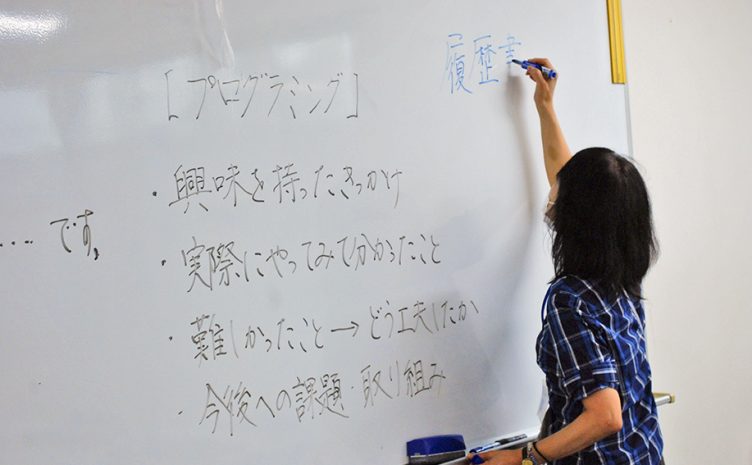 履歴書
[プログラミング]
・興味を持ったきっかけ
…… です。
・実際にやってみて分かったこと
・難しかったこと→どう工夫したか
・今後への課題・取り組み